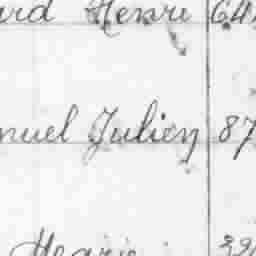 ard Henri 64
nuel Julien 87
Marie 39